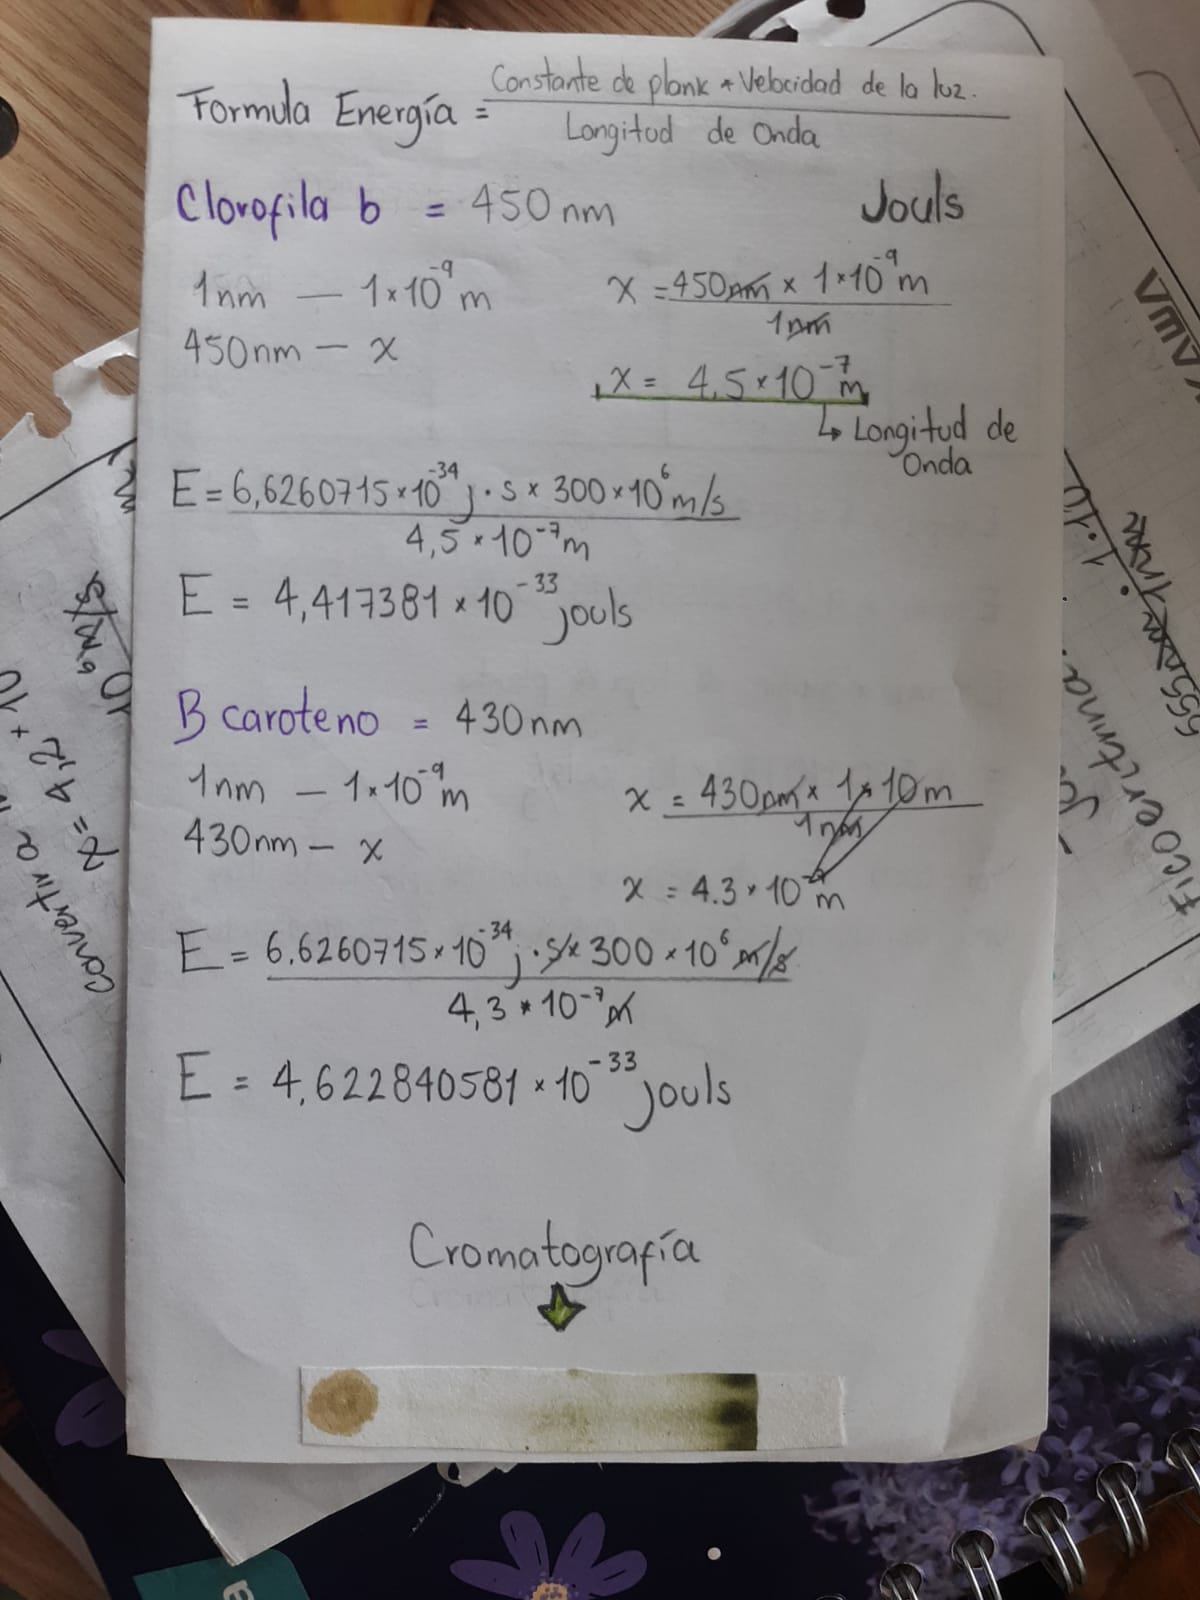 Formula Energía = Constante de plank * Velocidad de la luz.
Longitud de Onda
Clorofila b = 450 nm
Jouls
1nm — 1×10⁻⁹ m
450nm — x
x = 450nm × 1×10⁻⁹ m
1nm
x = 4,5 × 10⁻⁷ m
↳ Longitud de
Onda
E = 6,6260715×10⁻³⁴ j · s × 300×10⁶ m/s
4,5 × 10⁻⁷ m
E = 4,417381 × 10⁻³³ jouls
B caroteno = 430nm
1nm — 1×10⁻⁹ m
430nm — x
x = 430nm × 1×10 m
1nm
x = 4.3 × 10 m
E = 6.6260715×10⁻³⁴ j · s × 300 × 10⁶ m/s
4,3 * 10⁻⁷ m
E = 4,622840581 × 10⁻³³ jouls
Cromatografía
convertir a
ficoeritrina